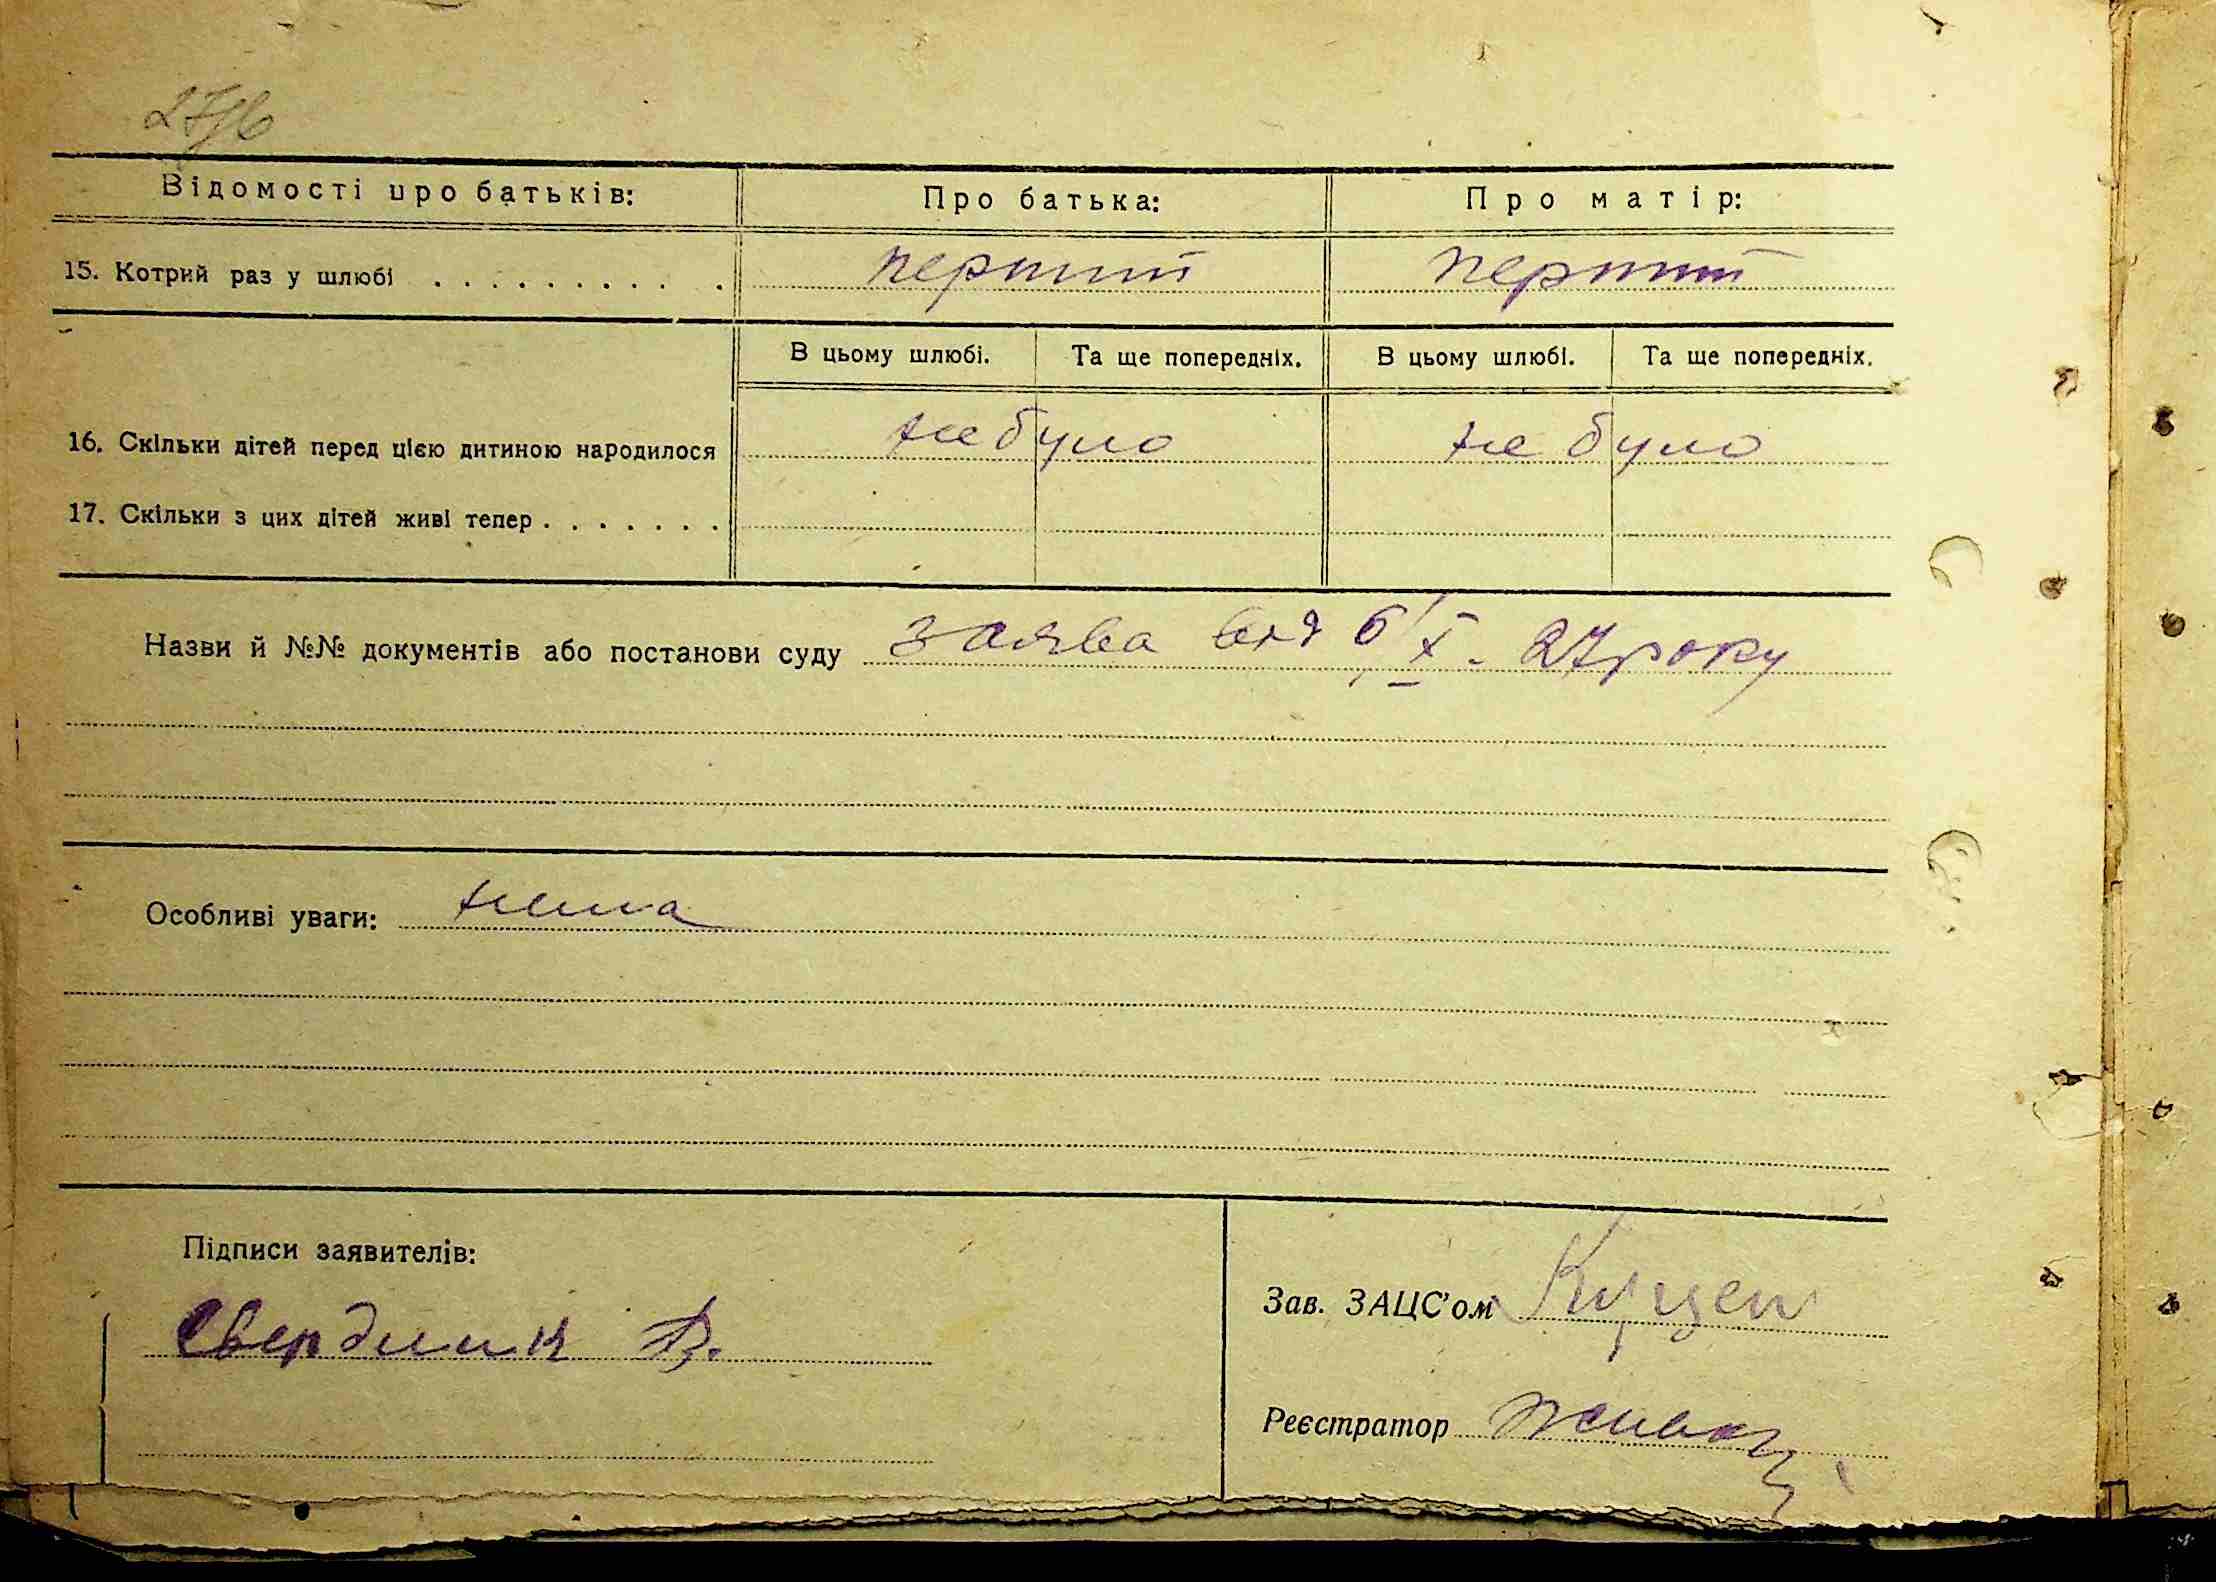 Відомості про батьків: Про батька: Про матір:
15. Котрий раз у шлюбі . . . . . . . . . . перший перший
В цьому шлюбі. Та ще попередніх. В цьому шлюбі. Та ще попередніх.
16. Скільки дітей перед цією дитиною народилося не було не було
17. Скільки з цих дітей живі тепер . . . . . . .
Назви й №№ документів або постанови суду заява від 6/X. 27 року
Особливі уваги: нема
Підписи заявителів:
Зав. ЗАЦС'ом
Свердлик В.
Реєстратор